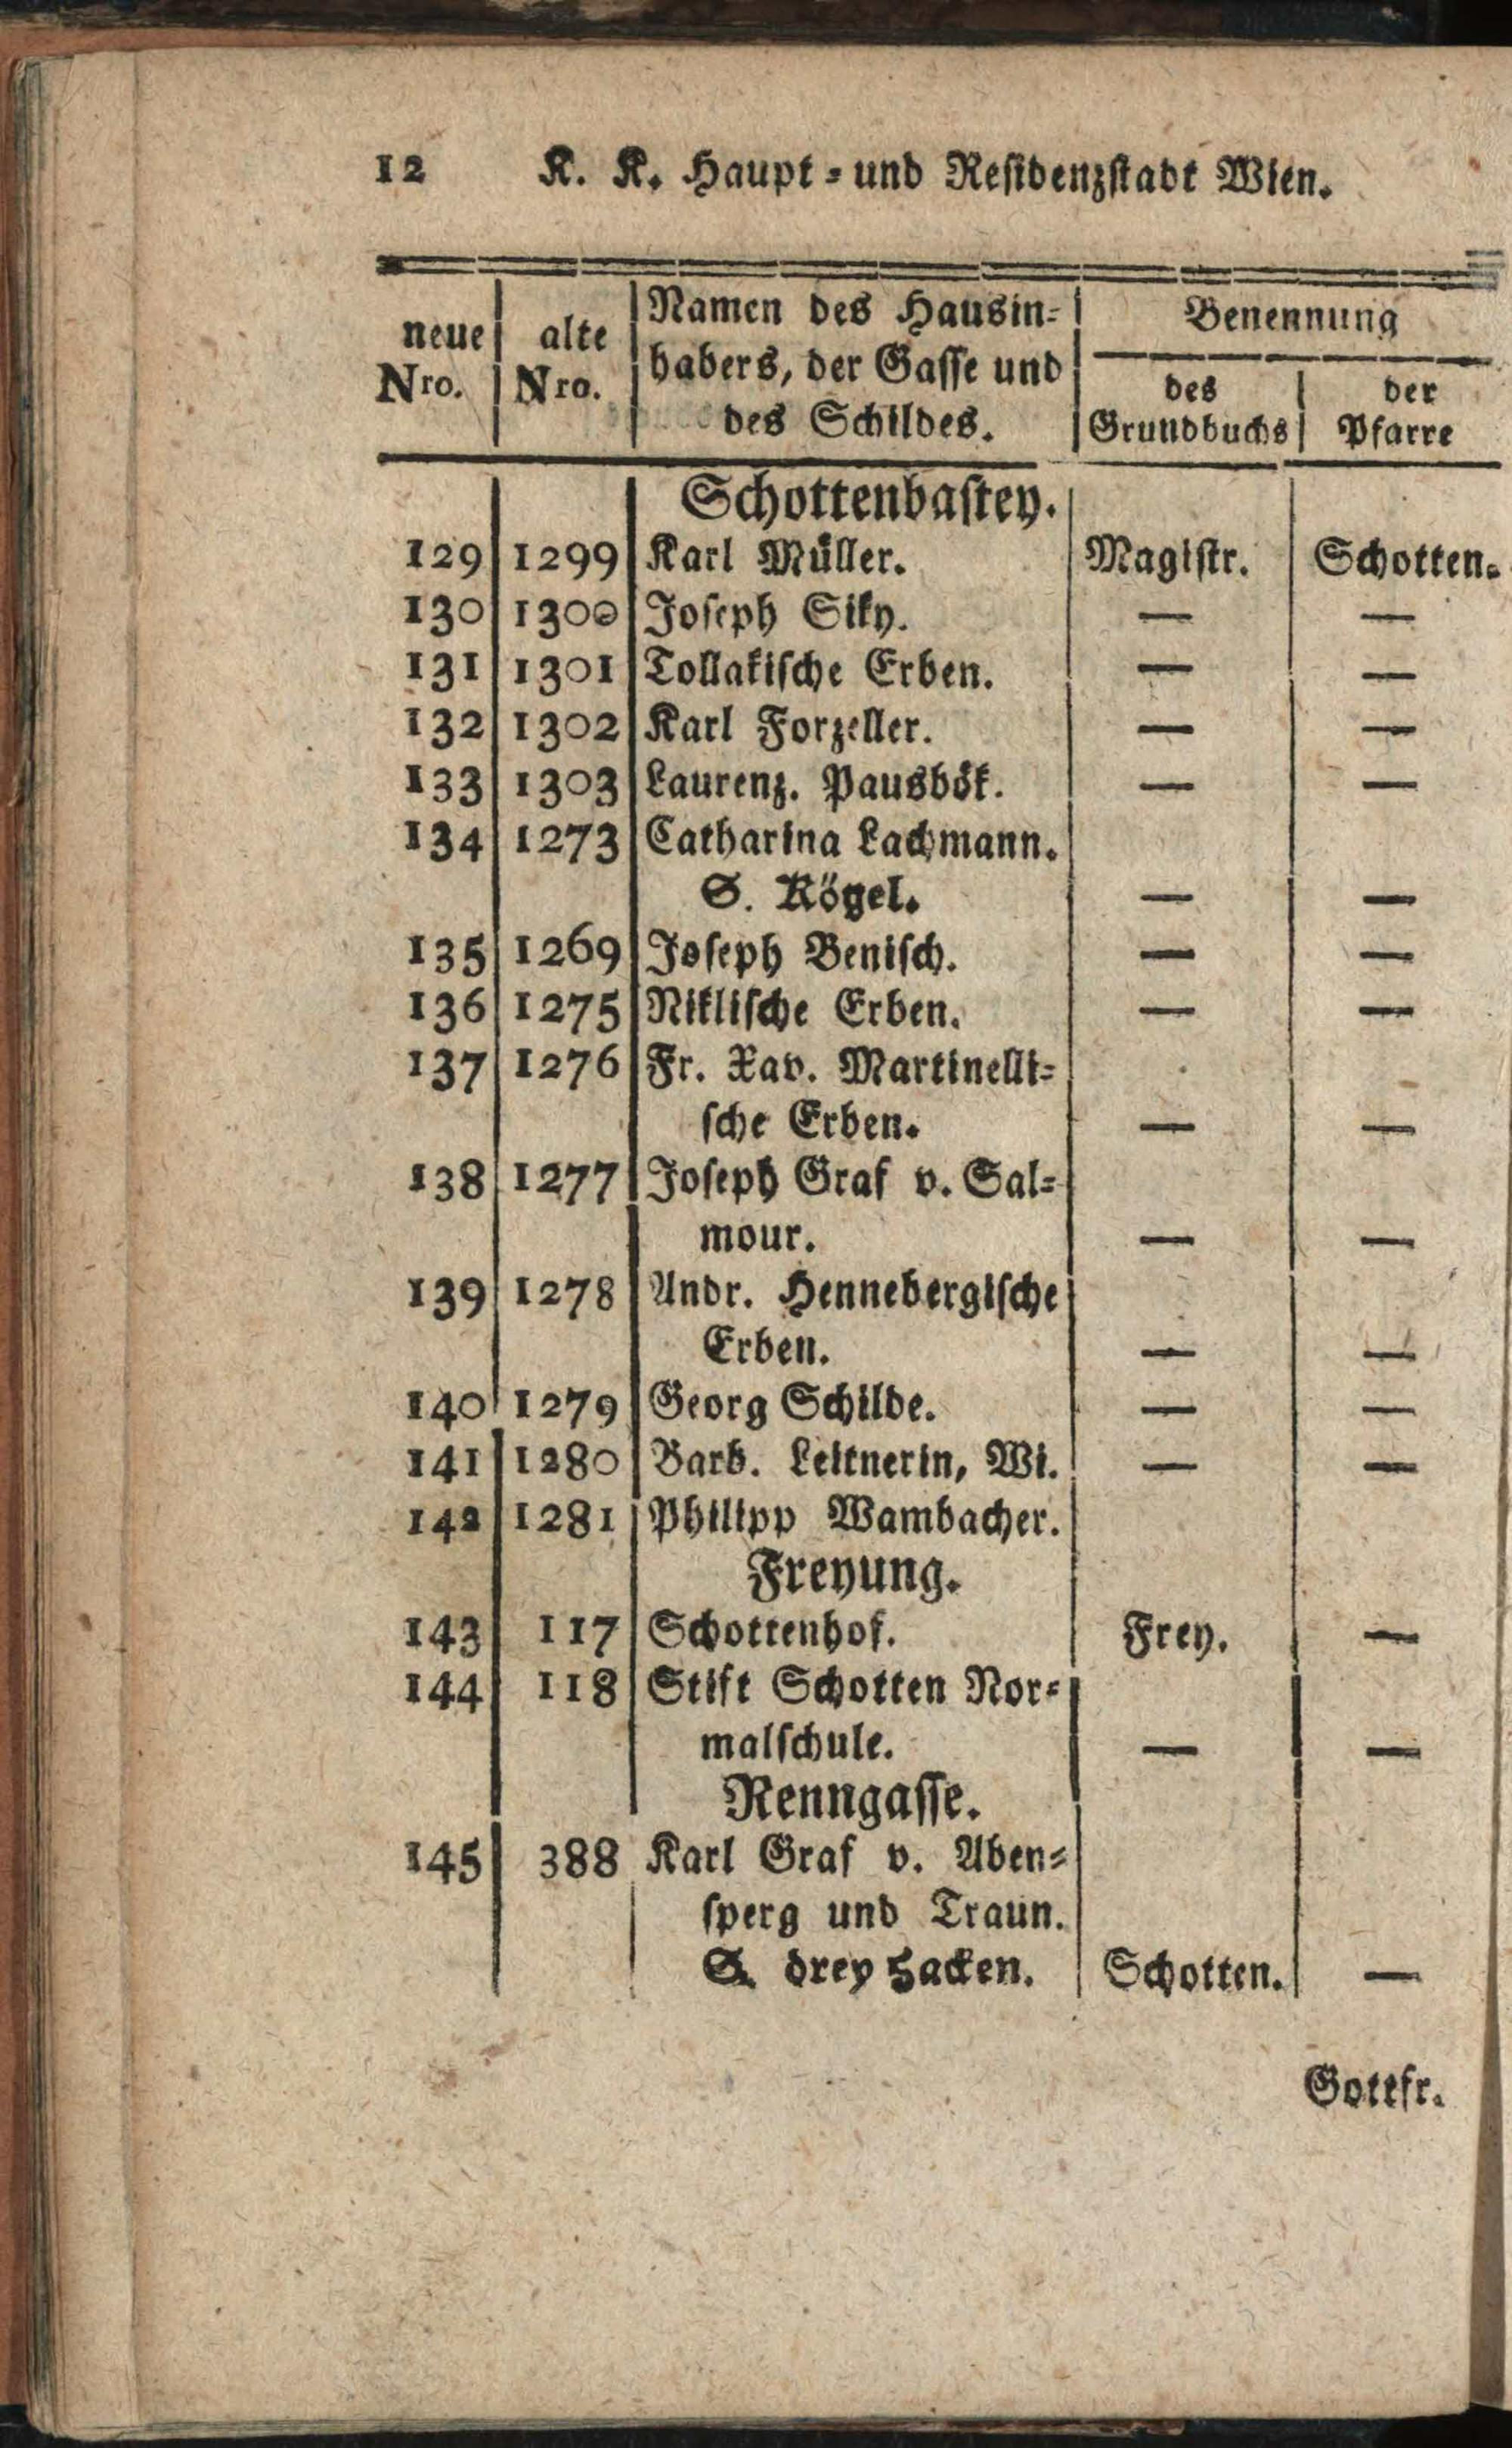 12 K. K. Haupt- und Residenzstadt Wien.
neue Nro. | alte Nro. | Namen des Hausin- | Benennung
habers, der Gasse und
des Schildes. | des Grundbuchs | der Pfarre
Schottenbastey.
129 | 1299 | Karl Müller. | Magistr. | Schotten.
130 | 1300 | Joseph Siky. | — | —
131 | 1301 | Tollakische Erben. | — | —
132 | 1302 | Karl Forzeller. | — | —
133 | 1303 | Laurenz. Pausbök. | — | —
134 | 1273 | Catharina Lachmann.
S. Kögel. | — | —
135 | 1269 | Joseph Benisch. | — | —
136 | 1275 | Niklische Erben. | — | —
137 | 1276 | Fr. Xav. Martinelli-
sche Erben. | — | —
138 | 1277 | Joseph Graf v. Sal-
mour. | — | —
139 | 1278 | Andr. Hennebergische
Erben. | — | —
140 | 1279 | Georg Schilde. | — | —
141 | 1280 | Barb. Leitnerin, Wi. | — | —
142 | 1281 | Philipp Wambacher.
Freyung.
143 | 117 | Schottenhof. | Frey. | —
144 | 118 | Stift Schotten Nor-
malschule. | — | —
Renngasse.
145 | 388 | Karl Graf v. Aben-
sperg und Traun.
S. drey Hacken. | Schotten. | —
Gottfr.